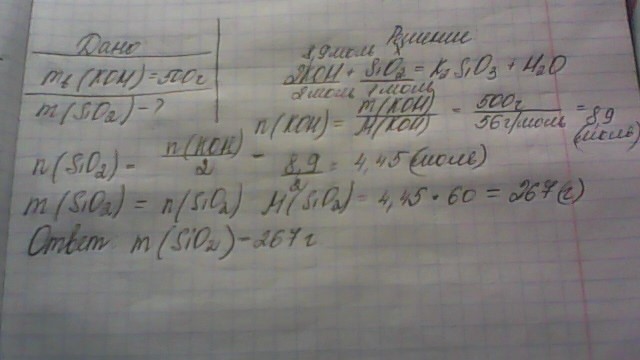 Дано
m_в(KOH)=500г
m(SiO₂)-?
Решение
8,9моль
2KOH + SiO₂ = K₂SiO₃ + H₂O
2моль 1моль
n(KOH) = m(KOH)/M(KOH) = 500г/56г/моль = 8,9 (моль)
n(SiO₂) = n(KOH)/2 = 8,9/2 = 4,45 (моль)
m(SiO₂) = n(SiO₂) M(SiO₂) = 4,45 · 60 = 267(г)
Ответ m(SiO₂) - 267г